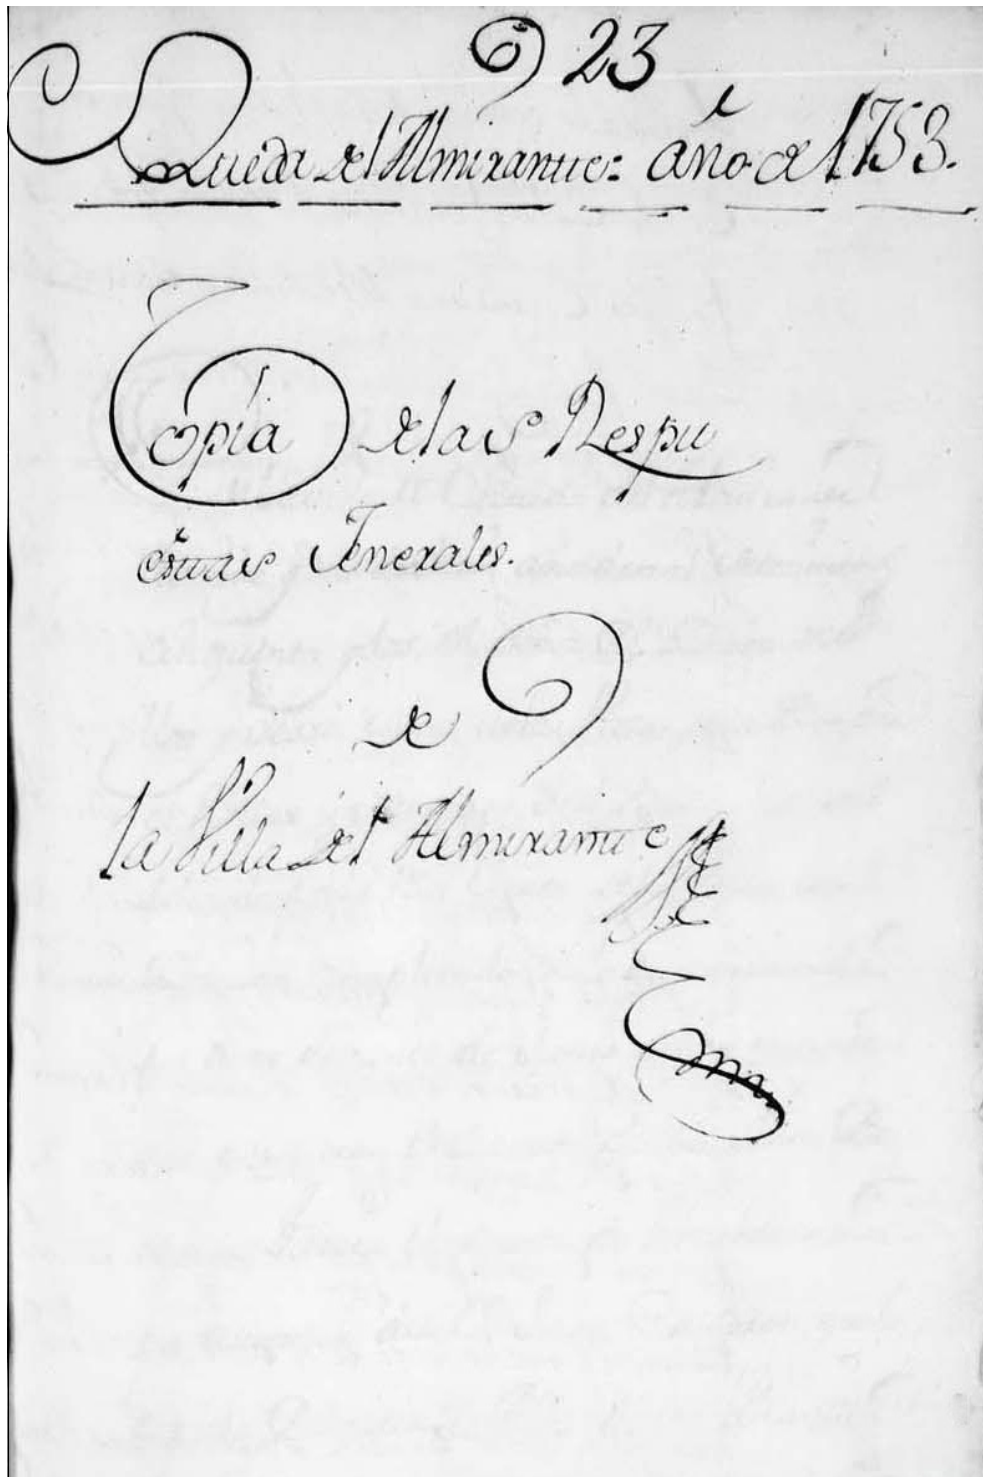 23
Rueda del Almirante: año de 1753.
Copia de las Respu
estas Jenerales.
de
la Villa del Almirante